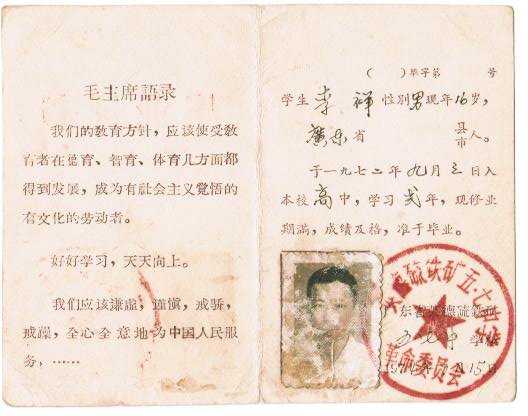 毛主席語录
我们的教育方针，应该使受教
育者在德育、智育、体育几方面都
得到发展，成为有社会主义觉悟的
有文化的劳动者。
好好学习，天天向上。
我们应该谦虚，谨慎，戒骄，
戒躁，全心全意地为中国人民服
务，……
（　）毕字第　号
学生李祥性别男现年16岁，
廣东省　县市人。
于一九七二年九月三日入
本校高中，学习弍年，现修业
期满，成绩及格，准于毕业。
广东省英德硫铁矿
五七中学
月15日
硫铁矿五·七中学
革命委员会